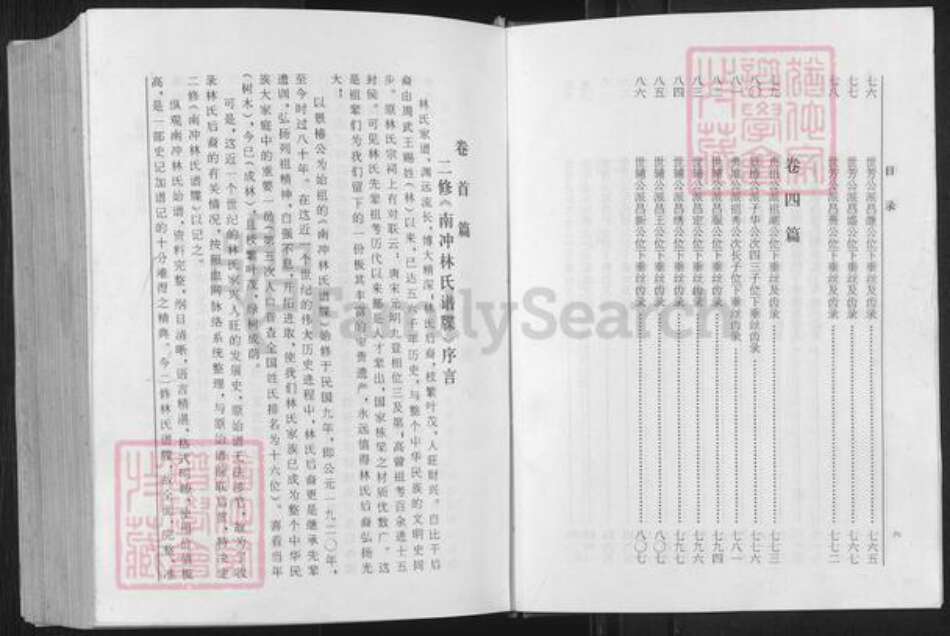 目录
七六 世芳公派昌 公位下垂丝及齿录 七六五
七七 世芳公派昌 公位下垂丝及齿录 七六七
七八 公位下垂丝及齿录 七七二
卷四篇
七九 公派昌 公位下垂丝齿录 七七三
八〇 公派子华公次四三子位下垂丝齿录 七七六
八一 公派祖秀公次长子位下垂丝齿录 七八一
八二 世辅公派昌 公位下垂丝齿录 七九四
八三 世辅公派昌定公位下垂丝齿录 七九六
八四 世辅公派昌 公位下垂丝齿录 七九七
八五 世辅公派昌王公位下垂丝齿录 八〇七
八六 世辅公派昌 公位下垂丝齿录 八〇七
六
卷首篇
二修《南冲林氏谱牒》序言
林氏家谱，渊远流长，博大精深，林氏后裔，枝繁叶茂，人旺财兴。自比干后
裔由周武王赐姓（林）以来，已达五六千年历史，与整个中华民族的文明史同
步。原林氏宗祠上有对联云：唐宋元明九登相位三及第；高曾祖考百余进十五
封侯。可见林氏先辈祖考历代以来都是人才辈出，国家栋梁之材质优数广。这
是祖辈们为我们留下的一份极其丰富的宝贵遗产，永远值得林氏后裔弘扬光
大！
以景椿公为始祖的《南冲林氏谱牒》始修于民国九年，即公元一九二〇年，
至今时过八十年。在这近一个世纪的伟大历史进程中，林氏后裔更是继承先辈
遗训，弘扬列祖精神，自强不息，开拓进取，使我们林氏家族已成为整个中华民
族大家庭中的重要一员（第五次人口普查全国姓氏排名为十六位）。喜看当年
（树木），今已（成林），且枝繁叶茂，绿树成荫。
可是，这近一个世纪的林氏家兴人旺的发展史，原始谱无法续节，故为了收
录林氏后裔的有关情况，按照血网脉络系统整理，与原始谱牒联后世，特决定
二修《南冲林氏谱牒》以记之。
纵观南冲林氏始谱，资料完整，纲目清晰，语言精湛，格式明畅，使用价值极
高，是一部史记加谱记的十分难得之精典。今二修林氏谱牒，故全面、完整、准
FamilySearch